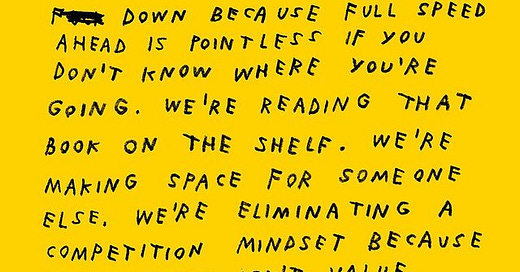 DOWN BECAUSE FULL SPEED
AHEAD IS POINTLESS IF YOU
DON'T KNOW WHERE YOU'RE
GOING. WE'RE READING THAT
BOOK ON THE SHELF. WE'RE
MAKING SPACE FOR SOMEONE
ELSE. WE'RE ELIMINATING A
COMPETITION MINDSET BECAUSE
VALUE